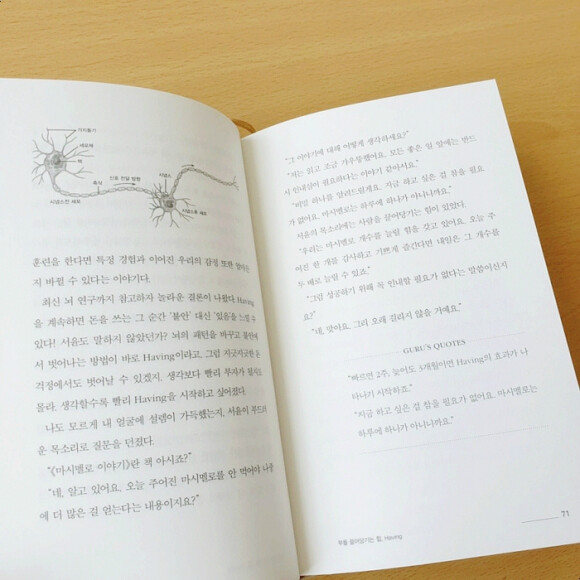 가지돌기
핵
축삭
신호 전달 방향
시냅스
시냅스전 세포
시냅스후 세포
훈련을 한다면 특정 경험과 이어진 우리의 감정 또한 얼마든
지 바뀔 수 있다는 이야기다.
최신 뇌 연구까지 참고하자 놀라운 결론이 나왔다. Having
을 계속하면 돈을 쓰는 그 순간 '불안' 대신 '있음'을 느낄 수
있다! 서윤도 말하지 않았던가? 뇌의 패턴을 바꾸고 불안에
서 벗어나는 방법이 바로 Having이라고. 그럼 지긋지긋한 돈
걱정에서도 벗어날 수 있겠지. 생각보다 빨리 부자가 될지도
몰라. 생각할수록 빨리 Having을 시작하고 싶어졌다.
나도 모르게 내 얼굴에 설렘이 가득했는지, 서윤이 부드러
운 목소리로 질문을 던졌다.
"《마시멜로 이야기》란 책 아시죠?"
"네, 알고 있어요. 오늘 주어진 마시멜로를 안 먹어야 나중
에 더 많은 걸 얻는다는 내용이지요?"
"그 이야기에 대해 어떻게 생각하세요?"
"저는 읽고 조금 갸우뚱했어요. 모든 좋은 일 앞에는 반드
시 인내심이 필요하다는 이야기 같아서요."
"비밀 하나를 알려드릴게요. 지금 하고 싶은 걸 참을 필요
가 없어요. 마시멜로는 하루에 하나가 아니니까요."
서윤의 목소리에는 사람을 끌어당기는 힘이 있었다.
"우리는 마시멜로 개수를 늘릴 힘을 갖고 있어요. 오늘 주
어진 한 개를 감사하고 기쁘게 즐긴다면 내일은 그 개수를
두 배로 늘릴 수 있죠."
"그럼 성공하기 위해 꼭 인내할 필요가 없다는 말씀이신지
요?"
"네, 맞아요. 그리 오래 걸리지 않을 거예요."
GURU'S QUOTES
"빠르면 2주, 늦어도 3개월이면 Having의 효과가 나
타나기 시작하죠."
"지금 하고 싶은 걸 참을 필요가 없어요. 마시멜로는
하루에 하나가 아니니까요."
부를 끌어당기는 힘, Having
71